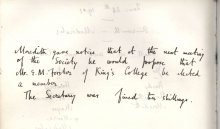 Meredith gave notice that at the next meeting
of the Society he would propose that
Mr. E. M. Forster of King's College be elected
a member.
The Secretary was fined ten shillings.